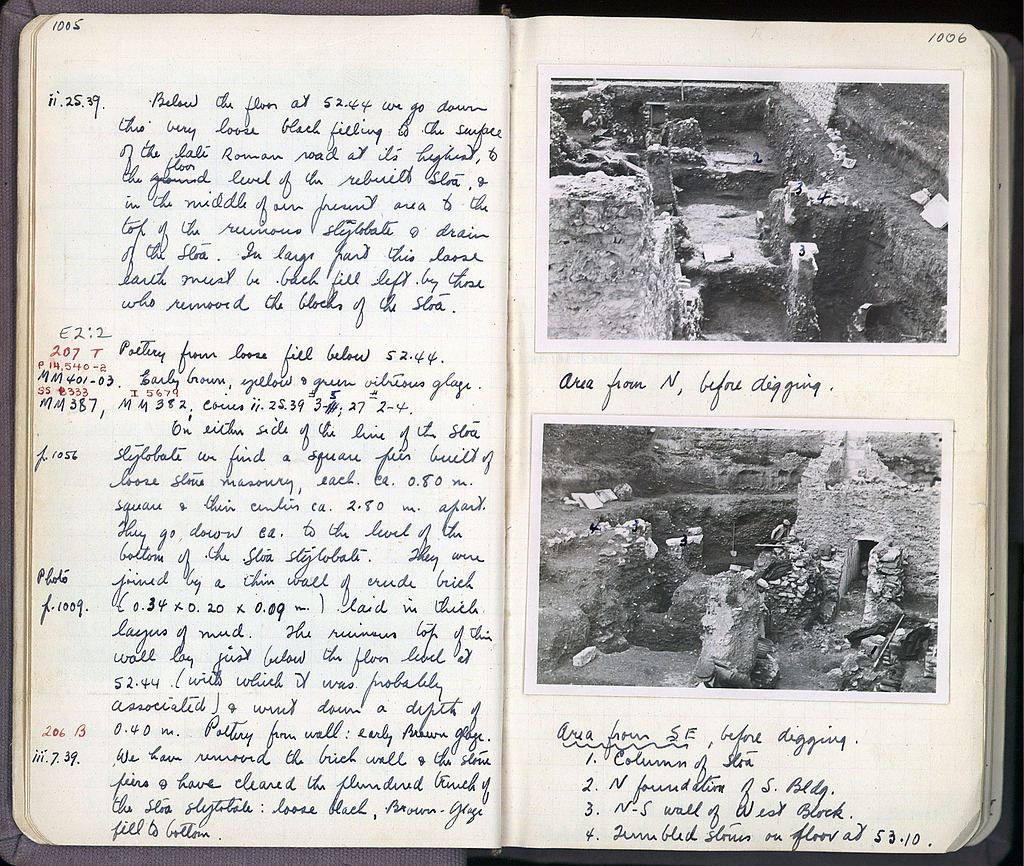 1005
ii.25.39. Below the floor at 52.44 we go down
this very loose black filling to the surface
of the late Roman road at its highest, to
floor
the ground level of the rebuilt Stoa, &
in the middle of our present area to the
top of the ruinous stylobate & drain
of the Stoa. In large part this loose
earth must be back fill left by those
who removed the blocks of the Stoa.
E2:2
207 T Pottery from loose fill below 52.44.
P 14,540-2
MM401-03. Early brown, yellow & green vitrious glaze.
SS 8333 I 5679
MM387, MM 382, coins ii.25.39 #3-5; 27 #2-4.
On either side of the line of the Stoa
p.1056 stylobate we find a square pier built of
loose stone masonry, each ca. 0.80 m.
square & their centers ca. 2.80 m. apart.
They go down ca. to the level of the
bottom of the Stoa stylobate. They were
Photo joined by a thin wall of crude brick
p.1009. (0.34 x 0.20 x 0.09 m.) laid in thick
layers of mud. The ruinous top of this
wall lay just below the floor level at
52.44 (with which it was probably
associated) & went down a depth of
206 B 0.40 m. Pottery from wall: early Brown glaze.
iii.7.39. We have removed the brick wall & the stone
piers & have cleared the plundered trench of
the Stoa stylobate: loose black, Brown-Glaze
fill to bottom.
1006
2
3
4
3
Area from N, before digging.
4
3
Area from SE, before digging.
1. Columns of Stoa
2. N foundation of S. Bldg.
3. N-S wall of West Block.
4. Tumbled stones on floor at 53.10.